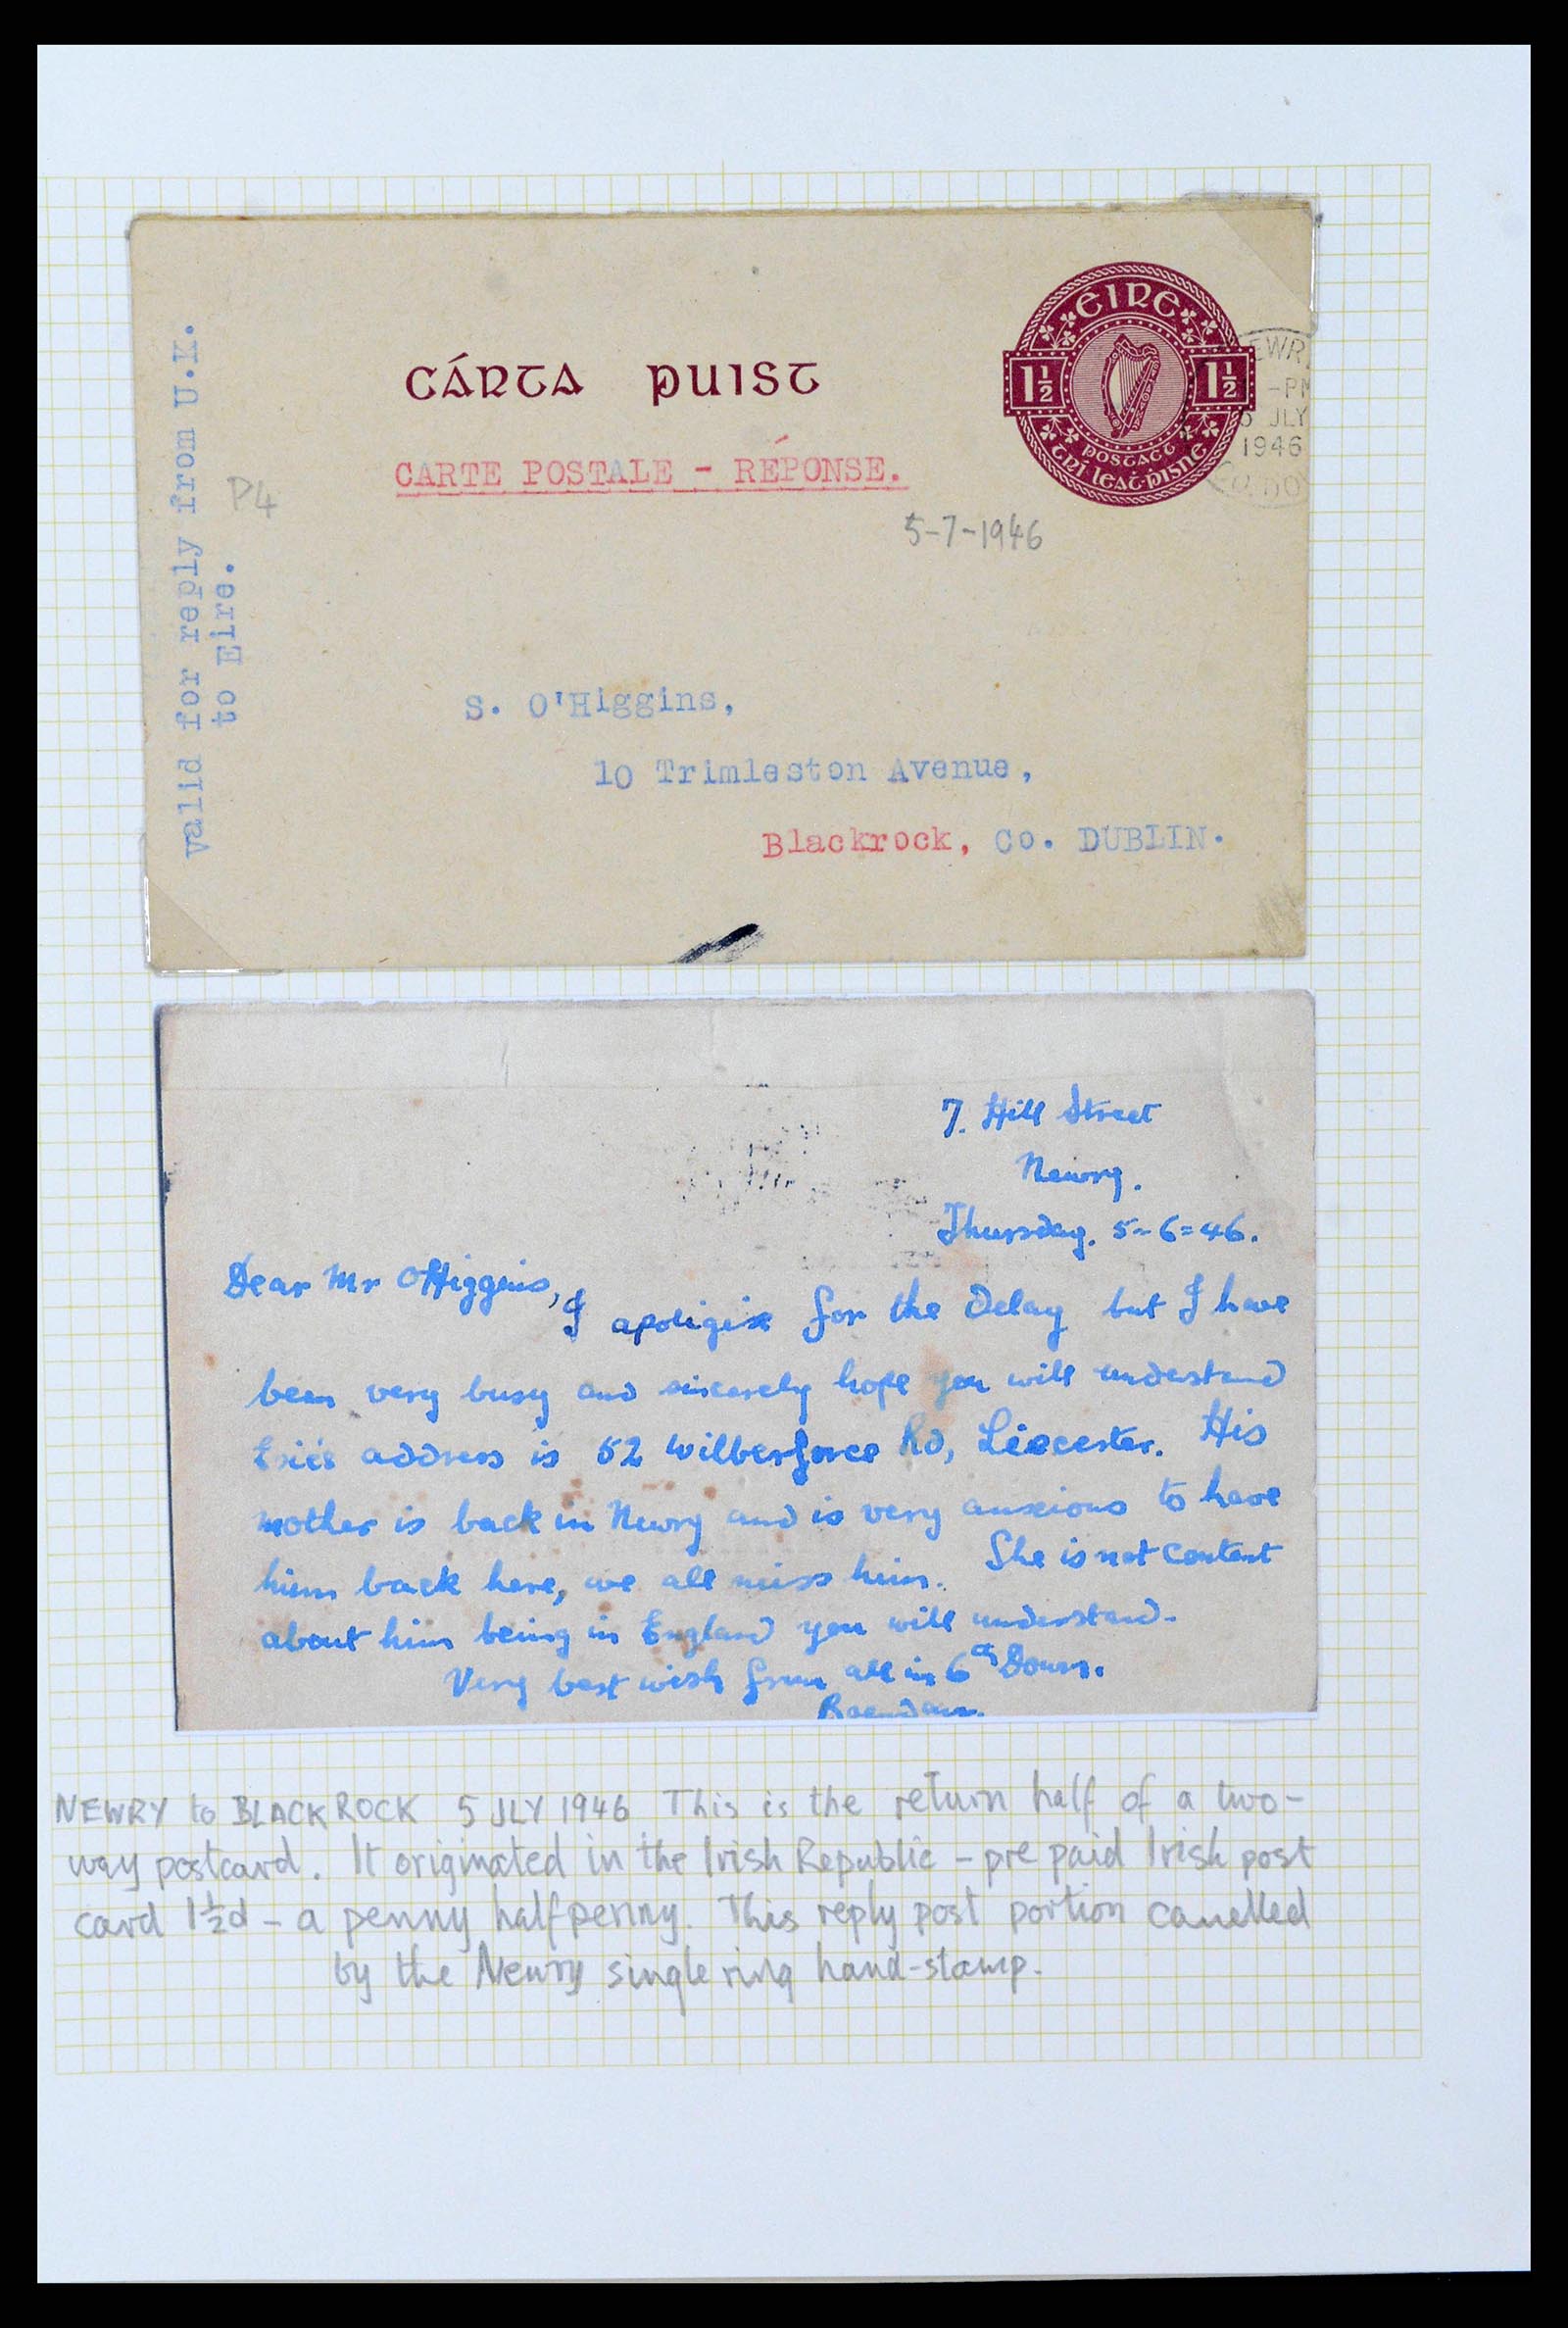 CÁRTA PUIST
CARTE POSTALE - RÉPONSE.
ÉIRE
1½ 1½
POSTAGE
TRÍ LEAT-PISNE
EWR
-PM
5 JLY
1946
CO. DO
Valid for reply from U.K.
to Eire.
P4
5-7-1946
S. O'Higgins,
10 Trimleston Avenue,
Blackrock, Co. DUBLIN.
7. Hill Street
Newry.
Thursday. 5-6=46.
Dear Mr O'Higgins,
I apoligise for the Delay but I have
been very busy and sincerely hope you will understand
Eric's address is 52 Wilberforce Rd, Leicester. His
mother is back in Newry and is very anxious to have
him back here, we all miss him. She is not content
about him being in England you will understand.
Very best wish from all in 6th Down.
Brendan.
NEWRY to BLACKROCK 5 JLY 1946 This is the return half of a two-
way postcard. It originated in the Irish Republic - pre paid Irish post
card 1½d - a penny halfpenny. This reply post portion canelled
by the Newry single ring hand-stamp.